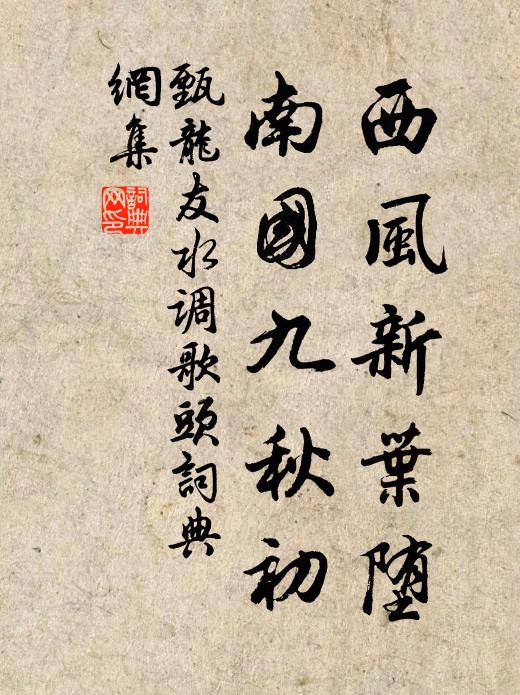 西風新葉墮
南國九秋初
甄龍友水调歌頭詞典
網集
詞典網印